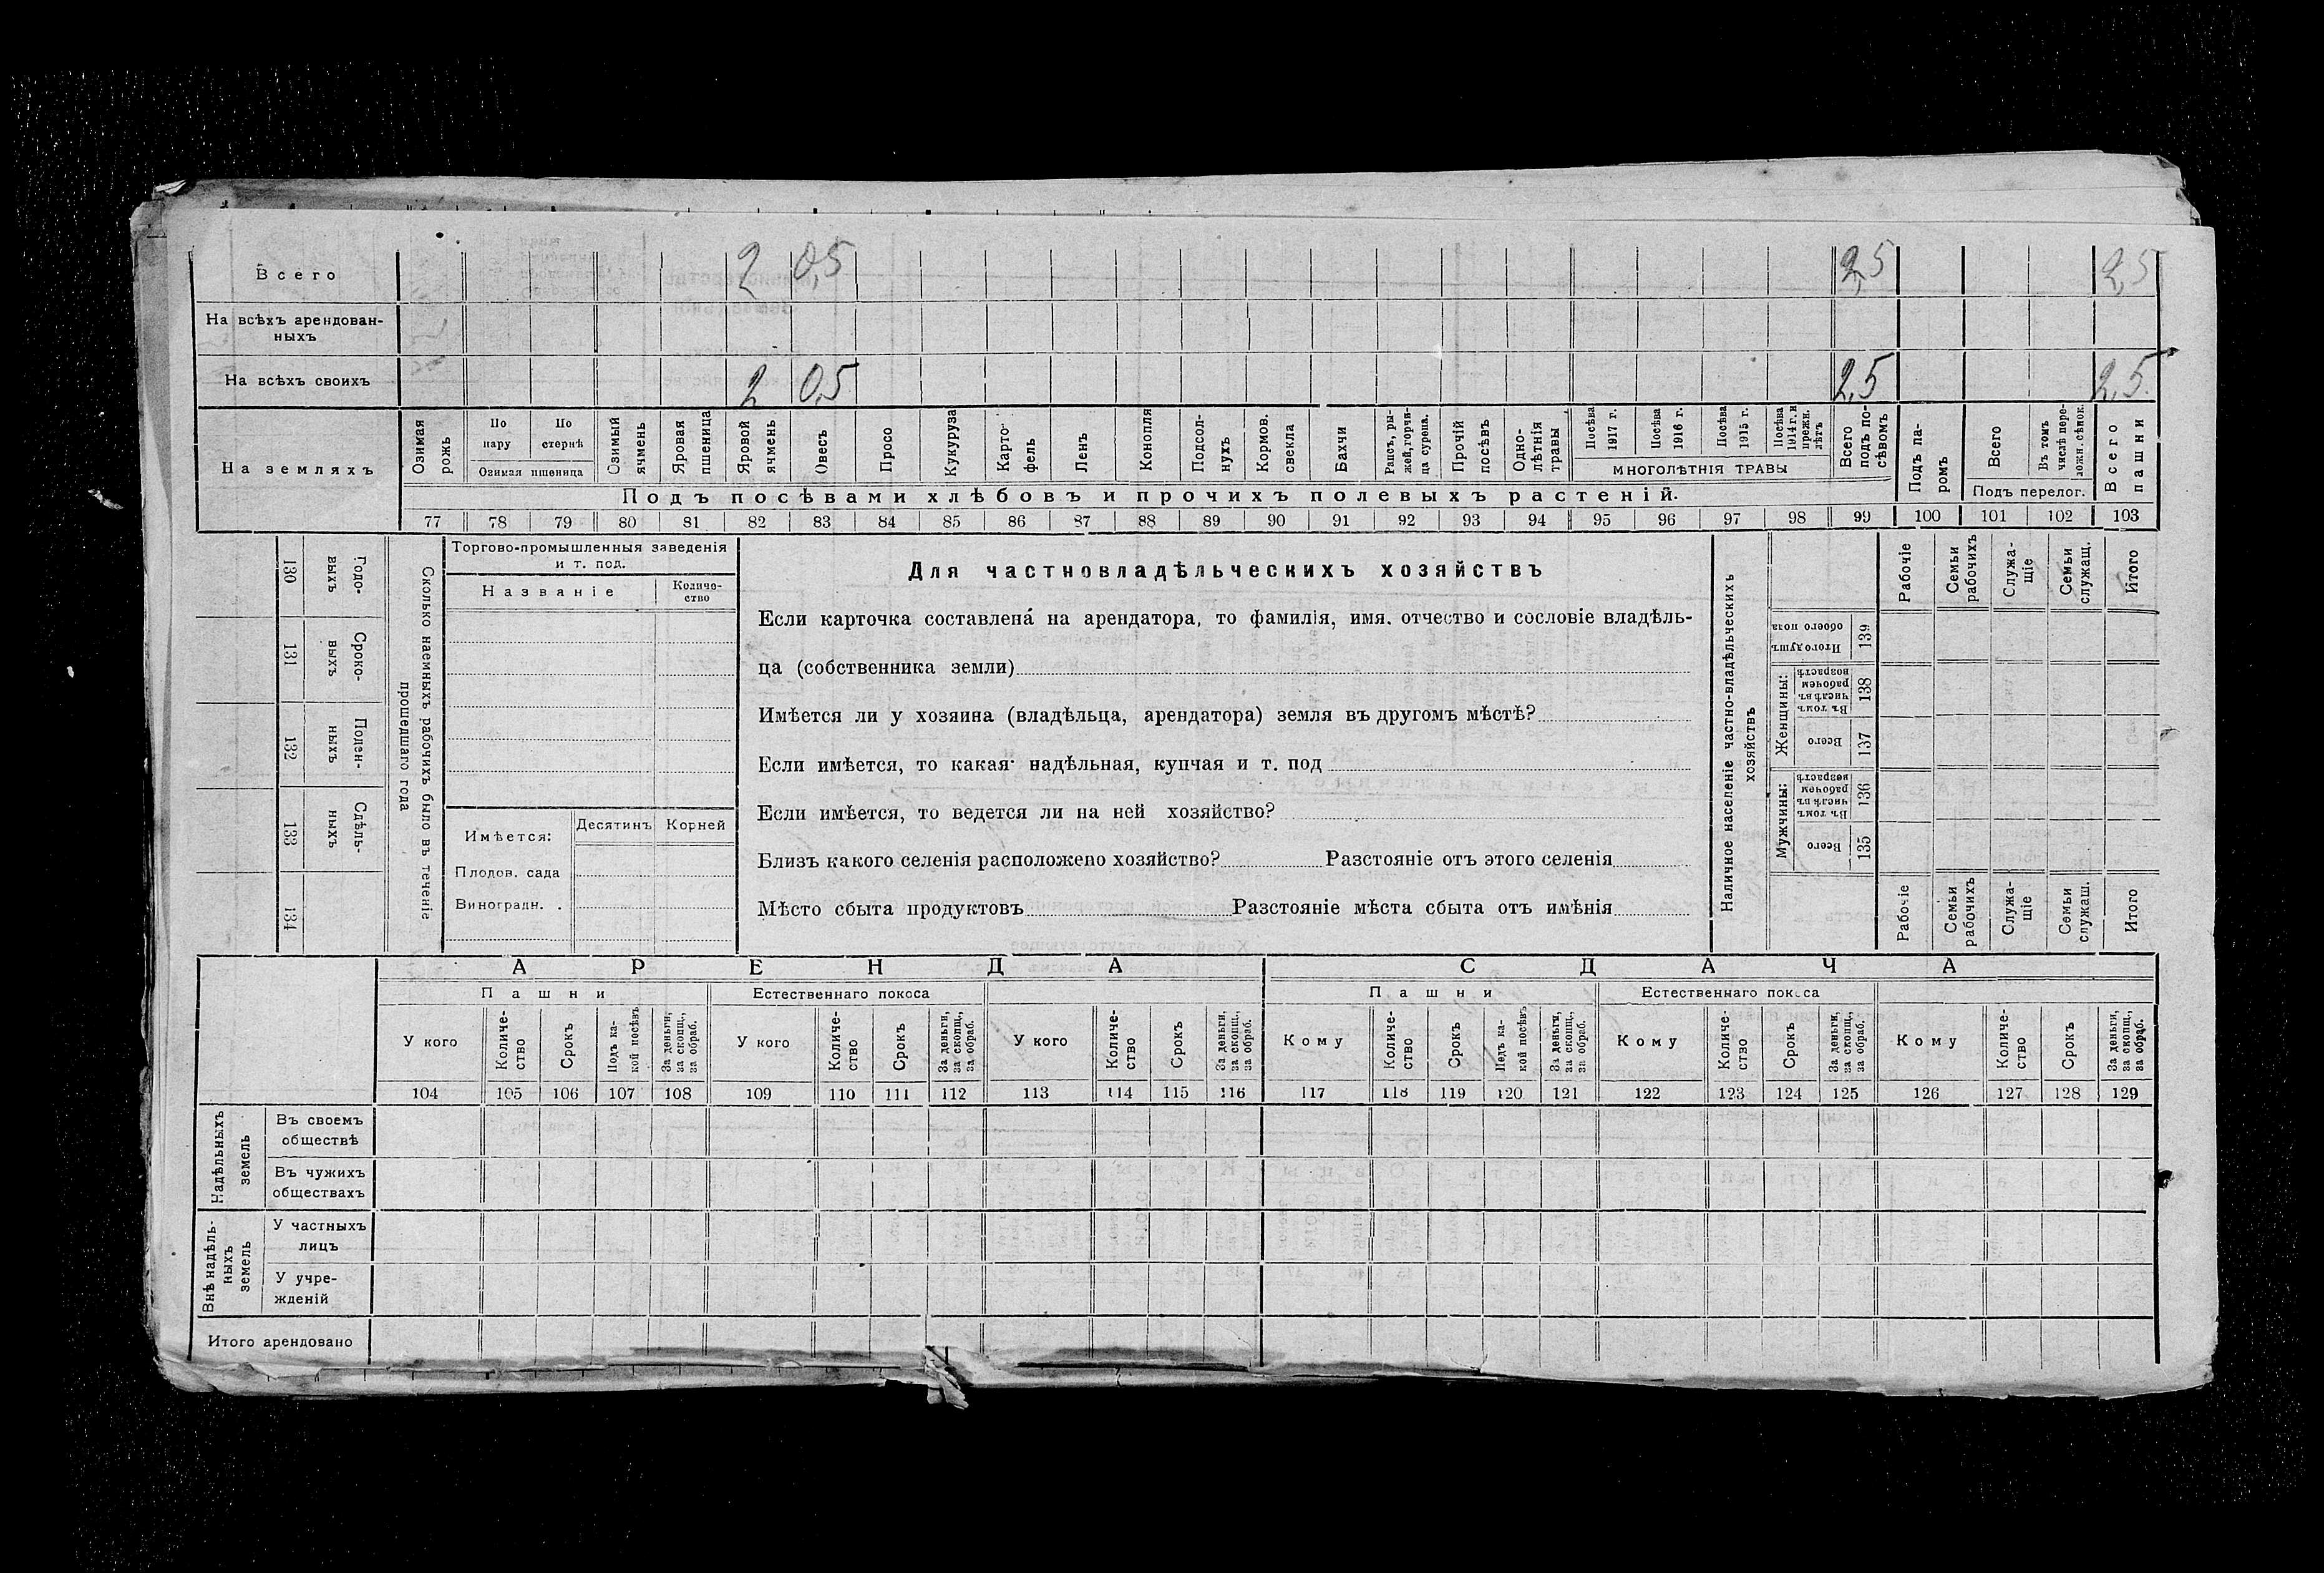 Всего 2 0,5 2,5 2,5
На всѣхъ арендован-
ныхъ
На всѣхъ своихъ 2 0,5 2,5 2,5
На земляхъ
Озимая рожь
По пару
По стернѣ
Озимая пшеница
Озимый ячмень
Яровая пшеница
Яровой ячмень
Овесъ
Просо
Кукуруза
Карто-
фель
Ленъ
Конопля
Подсол-
нухъ
Кормов. свекла
Бахчи
Рапсъ, ры-
жей, горчи-
ца сурепа.
Прочій посѣвъ
Одно-
лѣтнія
травы
Посѣва 1917 г.
Посѣва 1916 г.
Посѣва 1915 г.
Посѣва 1914 г. и прежн. лѣтъ
МНОГОЛѢТНІЯ ТРАВЫ
Всего подъ по-
сѣвомъ
Подъ па-
ромъ
Всего
Въ томъ числѣ пере-
ложн. сѣнок.
Подъ перелог.
Всего пашни
Подъ посѣвами хлѣбовъ и прочихъ полевыхъ растеній.
77 78 79 80 81 82 83 84 85 86 87 88 89 90 91 92 93 94 95 96 97 98 99 100 101 102 103
130 Годо-
выхъ
131 Сроко-
выхъ
132 Поден-
ныхъ
133 Сдѣль-
ныхъ
134
Сколько наемныхъ рабочихъ было въ теченіе
прошедшаго года
Торгово-промышленныя заведенія
и т. под.
Названіе
Количе-
ство
Имѣется: Десятинъ Корней
Плодов. сада
Виноградн. .
Для частновладѣльческихъ хозяйствъ
Если карточка составлена на арендатора, то фамилія, имя, отчество и сословіе владѣль-
ца (собственника земли)
Имѣется ли у хозяина (владѣльца, арендатора) земля въ другомъ мѣстѣ?
Если имѣется, то какая: надѣльная, купчая и т. под
Если имѣется, то ведется ли на ней хозяйство?
Близъ какого селенія расположено хозяйство? Разстояніе отъ этого селенія
Мѣсто сбыта продуктовъ Разстояніе мѣста сбыта отъ имѣнія
Наличное населеніе частно-владѣльческихъ
хозяйствъ
Рабочіе
Семьи рабочихъ
Служа-
щіе
Семьи служащ.
Итого
Итого душъ обоего пола 139
Женщины:
Въ томъ числѣ въ рабочем возрастѣ 138
Всего 137
Мужчины:
Въ томъ числѣ въ рабочем возрастѣ 136
Всего 135
Рабочіе
Семьи рабочихъ
Служа-
щіе
Семьи служащ.
Итого
АРЕНДА СДАЧА
Пашни Естественнаго покоса Пашни Естественнаго покоса
У кого
Количе-
ство
Срокъ
Подъ ка-
кой посѣвъ
За деньги, за скопщ., за обраб.
У кого
Количе-
ство
Срокъ
За деньги, за скопщ., за обраб.
У кого
Количе-
ство
Срокъ
За деньги, за скопщ., за обраб.
Кому
Количе-
ство
Срокъ
Подъ ка-
кой посѣвъ
За деньги, за скопщ., за обраб.
Кому
Количе-
ство
Срокъ
За деньги, за скопщ., за обраб.
Кому
Количе-
ство
Срокъ
За деньги, за скопщ., за обраб.
104 105 106 107 108 109 110 111 112 113 114 115 116 117 118 119 120 121 122 123 124 125 126 127 128 129
Надѣльныхъ
земель
Въ своемъ
обществѣ
Въ чужихъ
обществахъ
Внѣ надѣль-
ныхъ
земель
У частныхъ
лицъ
У учре-
жденій
Итого арендовано